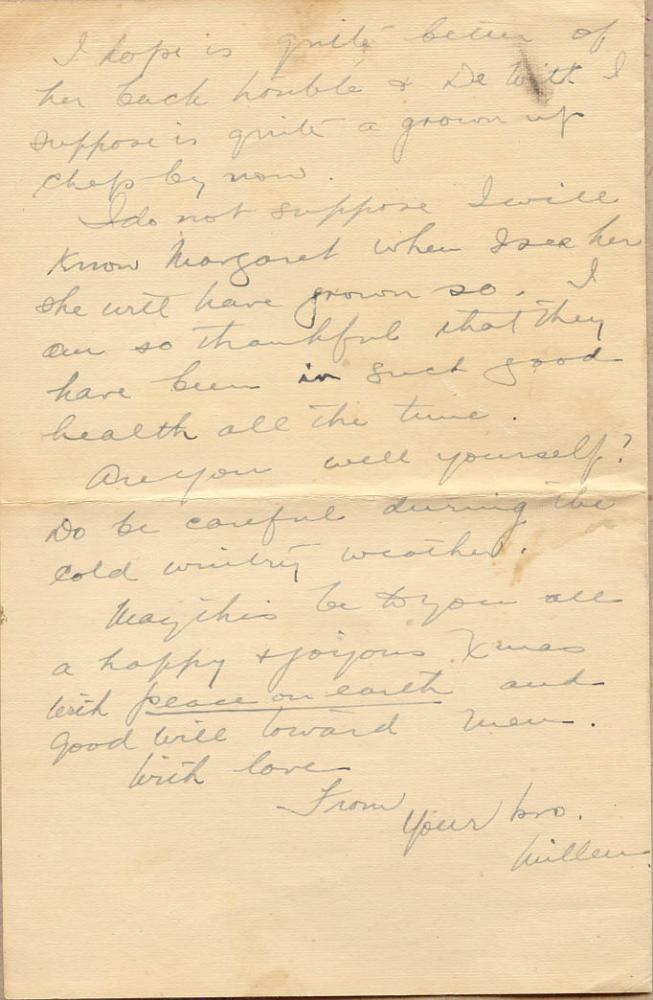 I hope is quite better of
her back trouble & De Witt I
suppose is quite a grown up
chap by now.
I do not suppose I will
know Margaret when I see her
she will have grown so. I
am so thankful that they
have been in such good
health all the time.
Are you well yourself?
Do be careful during the
cold wintry weather.
May this be to you all
a happy & joyous Xmas
with peace on earth and
good will toward men.
With love
From
Your bro.
Millen